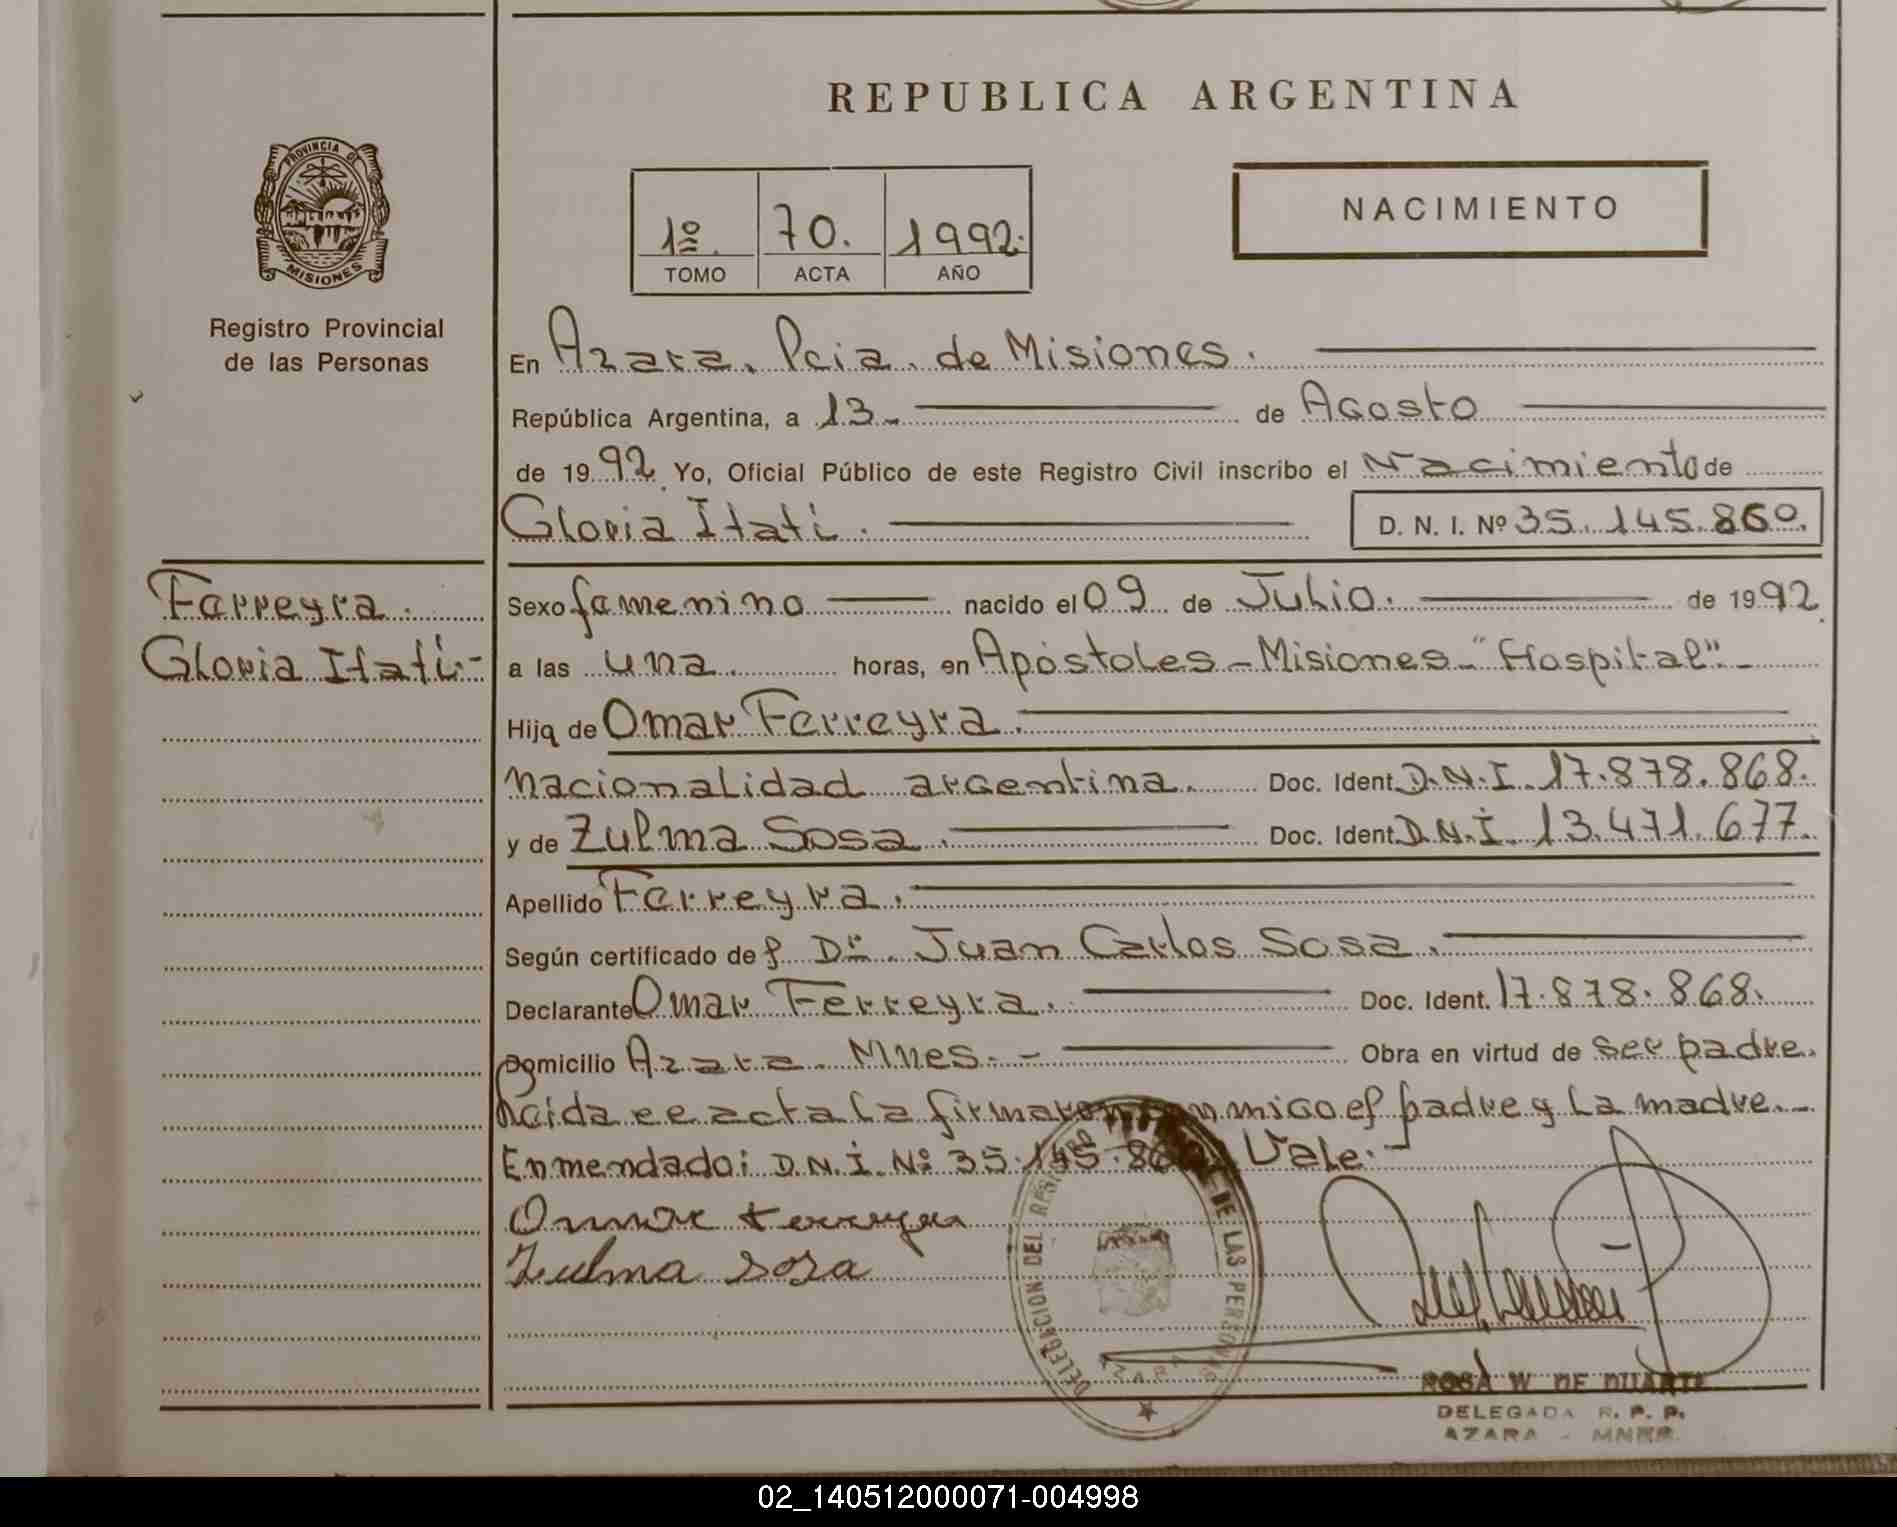 REPUBLICA ARGENTINA
PROVINCIA DE
MISIONES
Registro Provincial
de las Personas
1º
70.
1992.
TOMO
ACTA
AÑO
NACIMIENTO
En Azara. Pcia. de Misiones.
República Argentina, a 13 de Agosto
de 1992 Yo, Oficial Público de este Registro Civil inscribo el Nacimiento de
Gloria Itatí. D. N. I. Nº 35.145.860.
Ferreyra.
Gloria Itatí.-
Sexo femenino nacido el 09 de Julio. de 1992
a las una horas, en Apóstoles - Misiones - "Hospital" -
Hija de Omar Ferreyra.
nacionalidad argentina. Doc. Ident. D.N.I. 17.878.868.
y de Zulma Sosa. Doc. Ident. D.N.I. 13.471.677.
Apellido Ferreyra.
Según certificado del Dr. Juan Carlos Sosa.
Declarante Omar Ferreyra. Doc. Ident. 17.878.868.
Domicilio Azara. Mnes. - Obra en virtud de ser padre.
el acta la firmaron conmigo el padre y la madre.-
Enmendado: D.N.I. Nº 35.145.860 Vale.-
Omar Ferreyra
Zulma Sosa
DELEGACION DEL REGISTRO DE LAS PERSONAS
AZARA
ROSA W. DE DUARTE
DELEGADA R. P. P.
AZARA - MNES.
02_140512000071-004998